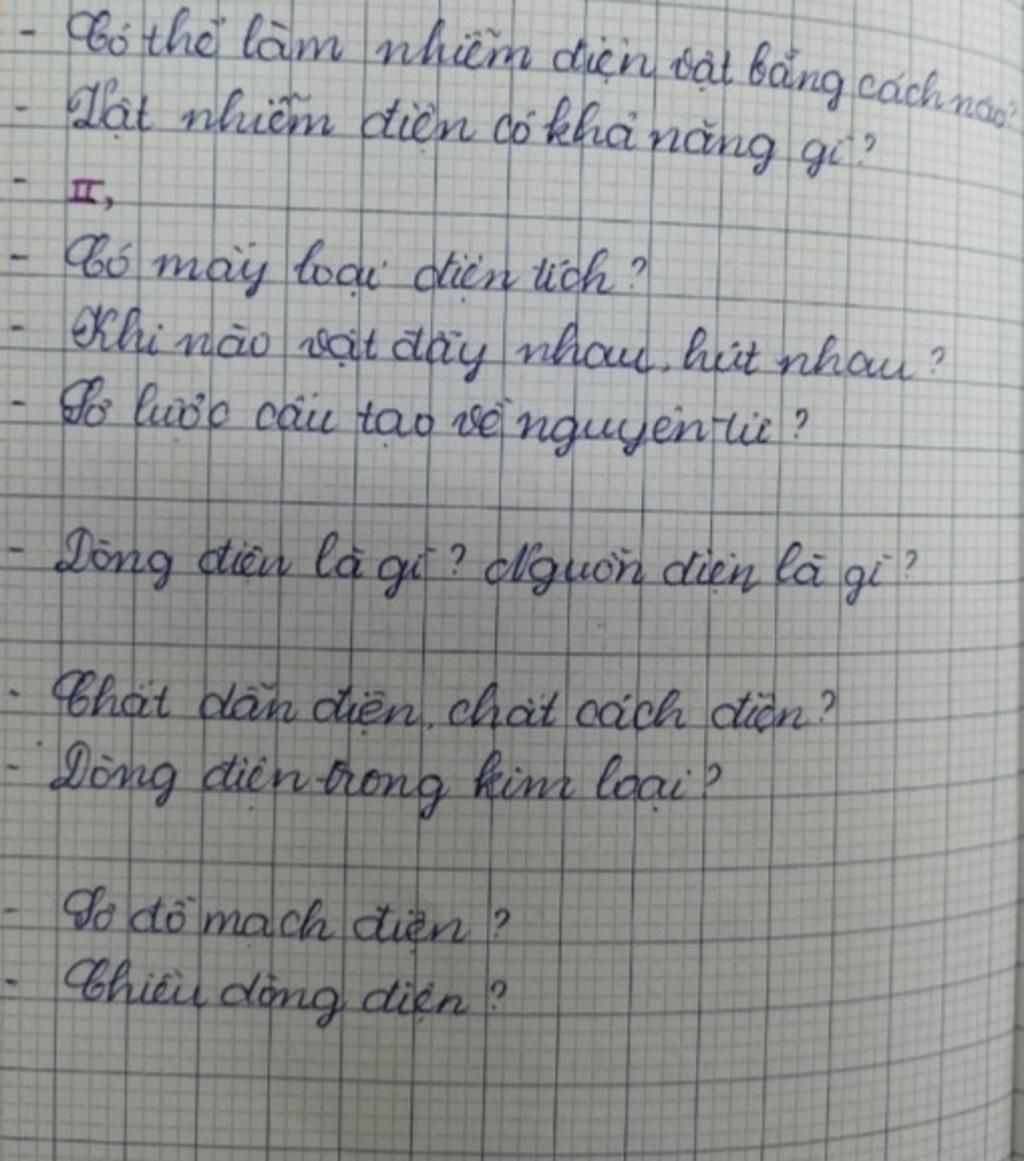 - Có thể làm nhiễm điện vật bằng cách nào?
- Vật nhiễm điện có khả năng gì?
- II,
- Có mấy loại điện tích?
- Khi nào vật đẩy nhau, hút nhau?
- Sơ lược cấu tạo về nguyên tử?
- Dòng điện là gì? Nguồn điện là gì?
- Chất dẫn điện, chất cách điện?
- Dòng điện trong kim loại?
- Sơ đồ mạch điện?
- Chiều dòng điện?